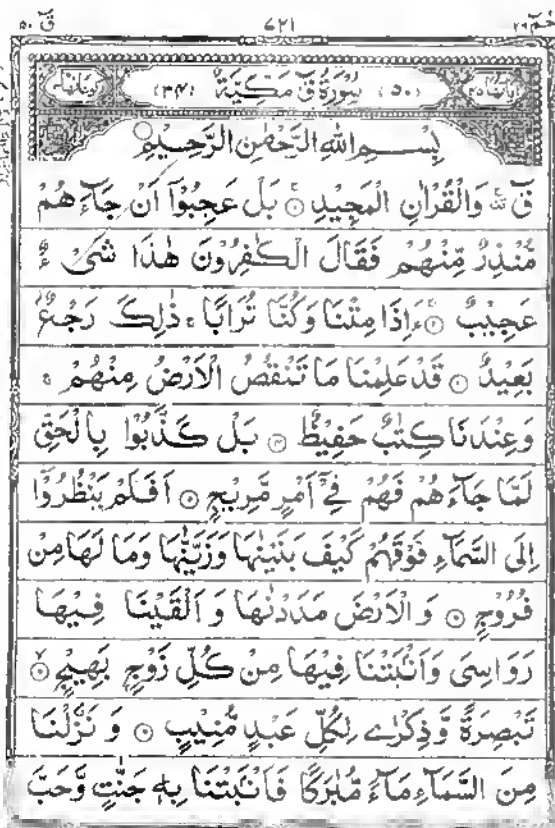 قٓ ٥٠ ٧٢١ حٰمٓ ٢٦
(٥٠) سُوۡرَةُ قٓ مَكِّيَّةٌ (٣٤)
بِسْمِ اللّٰهِ الرَّحْمٰنِ الرَّحِيْمِ
قٓ ۚ وَالْقُرْاٰنِ الْمَجِيْدِ ۞ بَلْ عَجِبُوْٓا اَنْ جَآءَهُمْ
مُّنْذِرٌ مِّنْهُمْ فَقَالَ الْكٰفِرُوْنَ هٰذَا شَیْءٌ
عَجِيْبٌ ۞ ءَاِذَا مِتْنَا وَكُنَّا تُرَابًا ۚ ذٰلِكَ رَجْعٌۢ
بَعِيْدٌ ۞ قَدْ عَلِمْنَا مَا تَنْقُصُ الْاَرْضُ مِنْهُمْ ۚ
وَعِنْدَنَا كِتٰبٌ حَفِيْظٌ ۞ بَلْ كَذَّبُوْا بِالْحَقِّ
لَمَّا جَآءَهُمْ فَهُمْ فِیْٓ اَمْرٍ مَّرِيْجٍ ۞ اَفَلَمْ يَنْظُرُوْٓا
اِلَى السَّمَآءِ فَوْقَهُمْ كَيْفَ بَنَيْنٰهَا وَزَيَّنّٰهَا وَمَا لَهَا مِنْ
فُرُوْجٍ ۞ وَالْاَرْضَ مَدَدْنٰهَا وَاَلْقَيْنَا فِيْهَا
رَوَاسِیَ وَاَنْۢبَتْنَا فِيْهَا مِنْ كُلِّ زَوْجٍۭ بَهِيْجٍ ۞
تَبْصِرَةً وَّذِكْرٰى لِكُلِّ عَبْدٍ مُّنِيْبٍ ۞ وَنَزَّلْنَا
مِنَ السَّمَآءِ مَآءً مُّبٰرَكًا فَاَنْۢبَتْنَا بِهٖ جَنّٰتٍ وَّحَبَّ